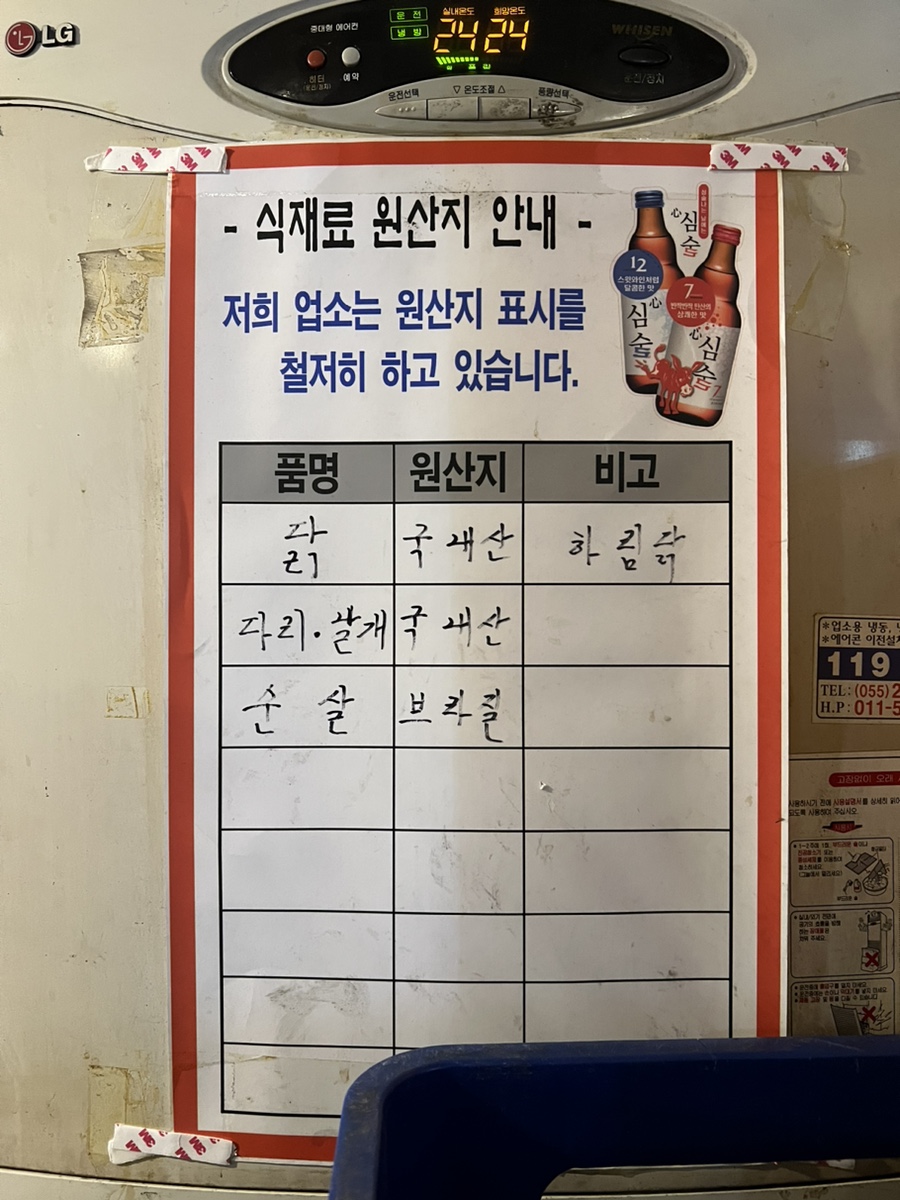 LG
중대형 에어컨
운전
냉방
실내온도
희망온도
24 24
WHISEN
히터
예약
운전/정지
운전선택
▽ 온도조절 △
풍량선택
3M
3M
- 식재료 원산지 안내 -
저희 업소는 원산지 표시를
철저히 하고 있습니다.
心
심
술
12
스윗와인처럼
달콤한 맛
7
상쾌한 맛
心
심
술
心
심
술
7
품명 원산지 비고
닭 국내산 하림닭
다리·날개 국내산
순살 브라질
*업소용 냉동,
*에어컨 이전설치
119
TEL: (055) 2
H.P: 011-5
고장없이 오래
사용하시기 전에 사용설명서를 상세히
되도록 사용하여 주십시오.
3M